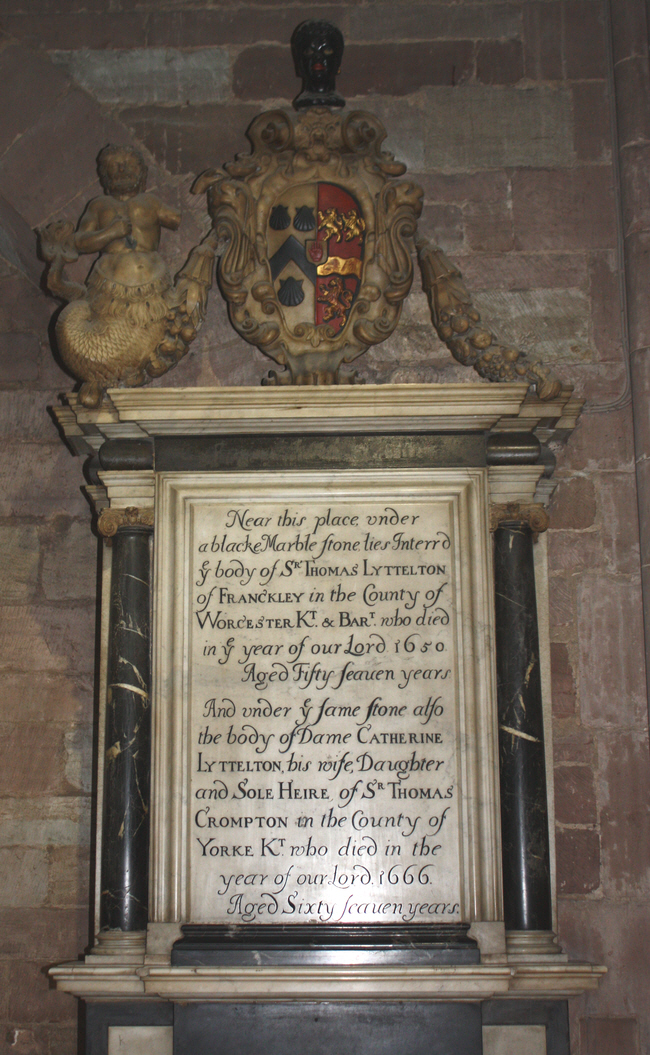 Near this place, vnder
a blacke Marble stone lies Interr'd
yͤ body of Sᴿ THOMAS LYTTELTON
of FRANCKLEY in the County of
WORCESTER Kᵀ. & BARᵀ. who died
in yͤ year of our Lord 1650.
Aged Fifty seauen years
And vnder yͤ same stone also
the body of Dame CATHERINE
LYTTELTON, his wife, Daughter
and SOLE HEIRE, of Sᴿ THOMAS
CROMPTON in the County of
YORKE Kᵀ who died in the
year of our Lord, 1666.
Aged Sixty seauen years.